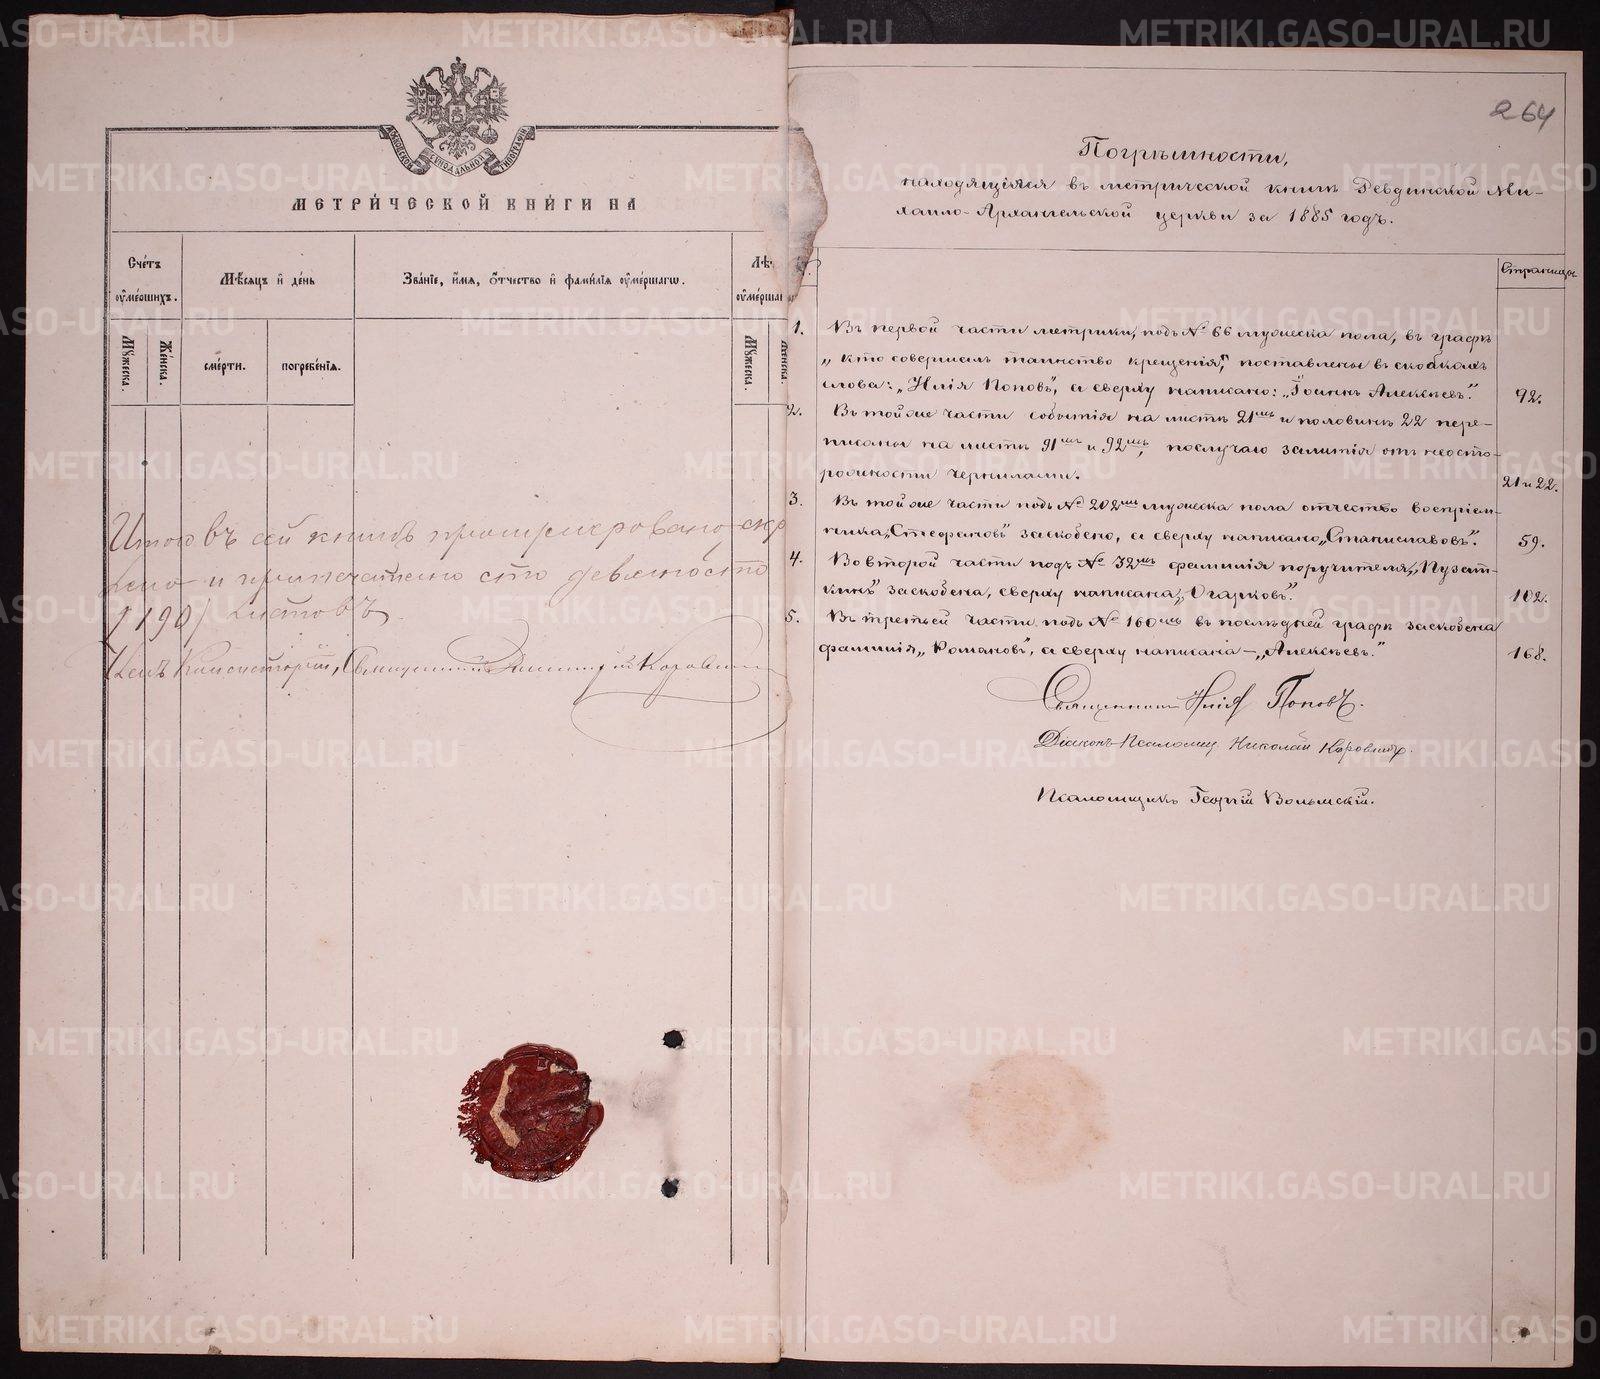 МОСКОВСКОЙ СѴНОДАЛЬНОЙ ТИПОГРАФІИ
МЕТРИ́ЧЕСКОЙ КНИ́ГИ НА
Сче́тъ оу҆ме́ршихъ.
Мѣ́сяцъ и҆ де́нь
Зва́нїе, и҆́мя, ѻ҆́тчество и҆ фами́лїя оу҆ме́ршагѡ.
Лѣ́
оу҆ме́ршаг
Мꙋ́жеска.
Же́нска.
сме́рти.
погребе́нїя.
Мꙋ́жеска.
Же́нска.
Итого въ сей книгѣ пронумеровано, скр
лено и припечатано сто девяносто
/190/ листовъ.
Членъ Консисторіи, Священникъ
264
Погрѣшности,
находящіяся въ метрической книгѣ Ревдинской Ми-
хаило-Архангельской церкви за 1885 годъ.
Страницы
1. Въ первой части метрики, подъ № 66 мужеска пола, въ графѣ
„кто совершилъ таинство крещенія", поставлены въ скобкахъ
слова: „Илія Поповъ", а сверху написано: „Іоаннъ Алексѣевъ". 92.
2. Въ той же части событія на листѣ 21мъ и половинѣ 22 пере-
писаны на листѣ 91мъ и 92мъ, послучаю залитія отъ неосто-
рожности чернилами. 21 и 22.
3. Въ той же части подъ № 202мъ мужеска пола отчество воспріем-
ника „Стефановъ" заскоблено, а сверху написано „Станиславовъ". 59.
4. Во второй части подъ № 32мъ фамилія поручителя „Пузат-
кинъ" заскоблена, сверху написана „Огарковъ". 102.
5. Въ третьей части подъ № 160мъ въ послѣдней графѣ заскоблена
фамилія „Романовъ", а сверху написана – „Алексѣевъ." 168.
Священникъ Илія Поповъ.
Діаконъ-Псаломщ. Николай
Псаломщикъ Георгій Волынскій.
METRIKI.GASO-URAL.RU